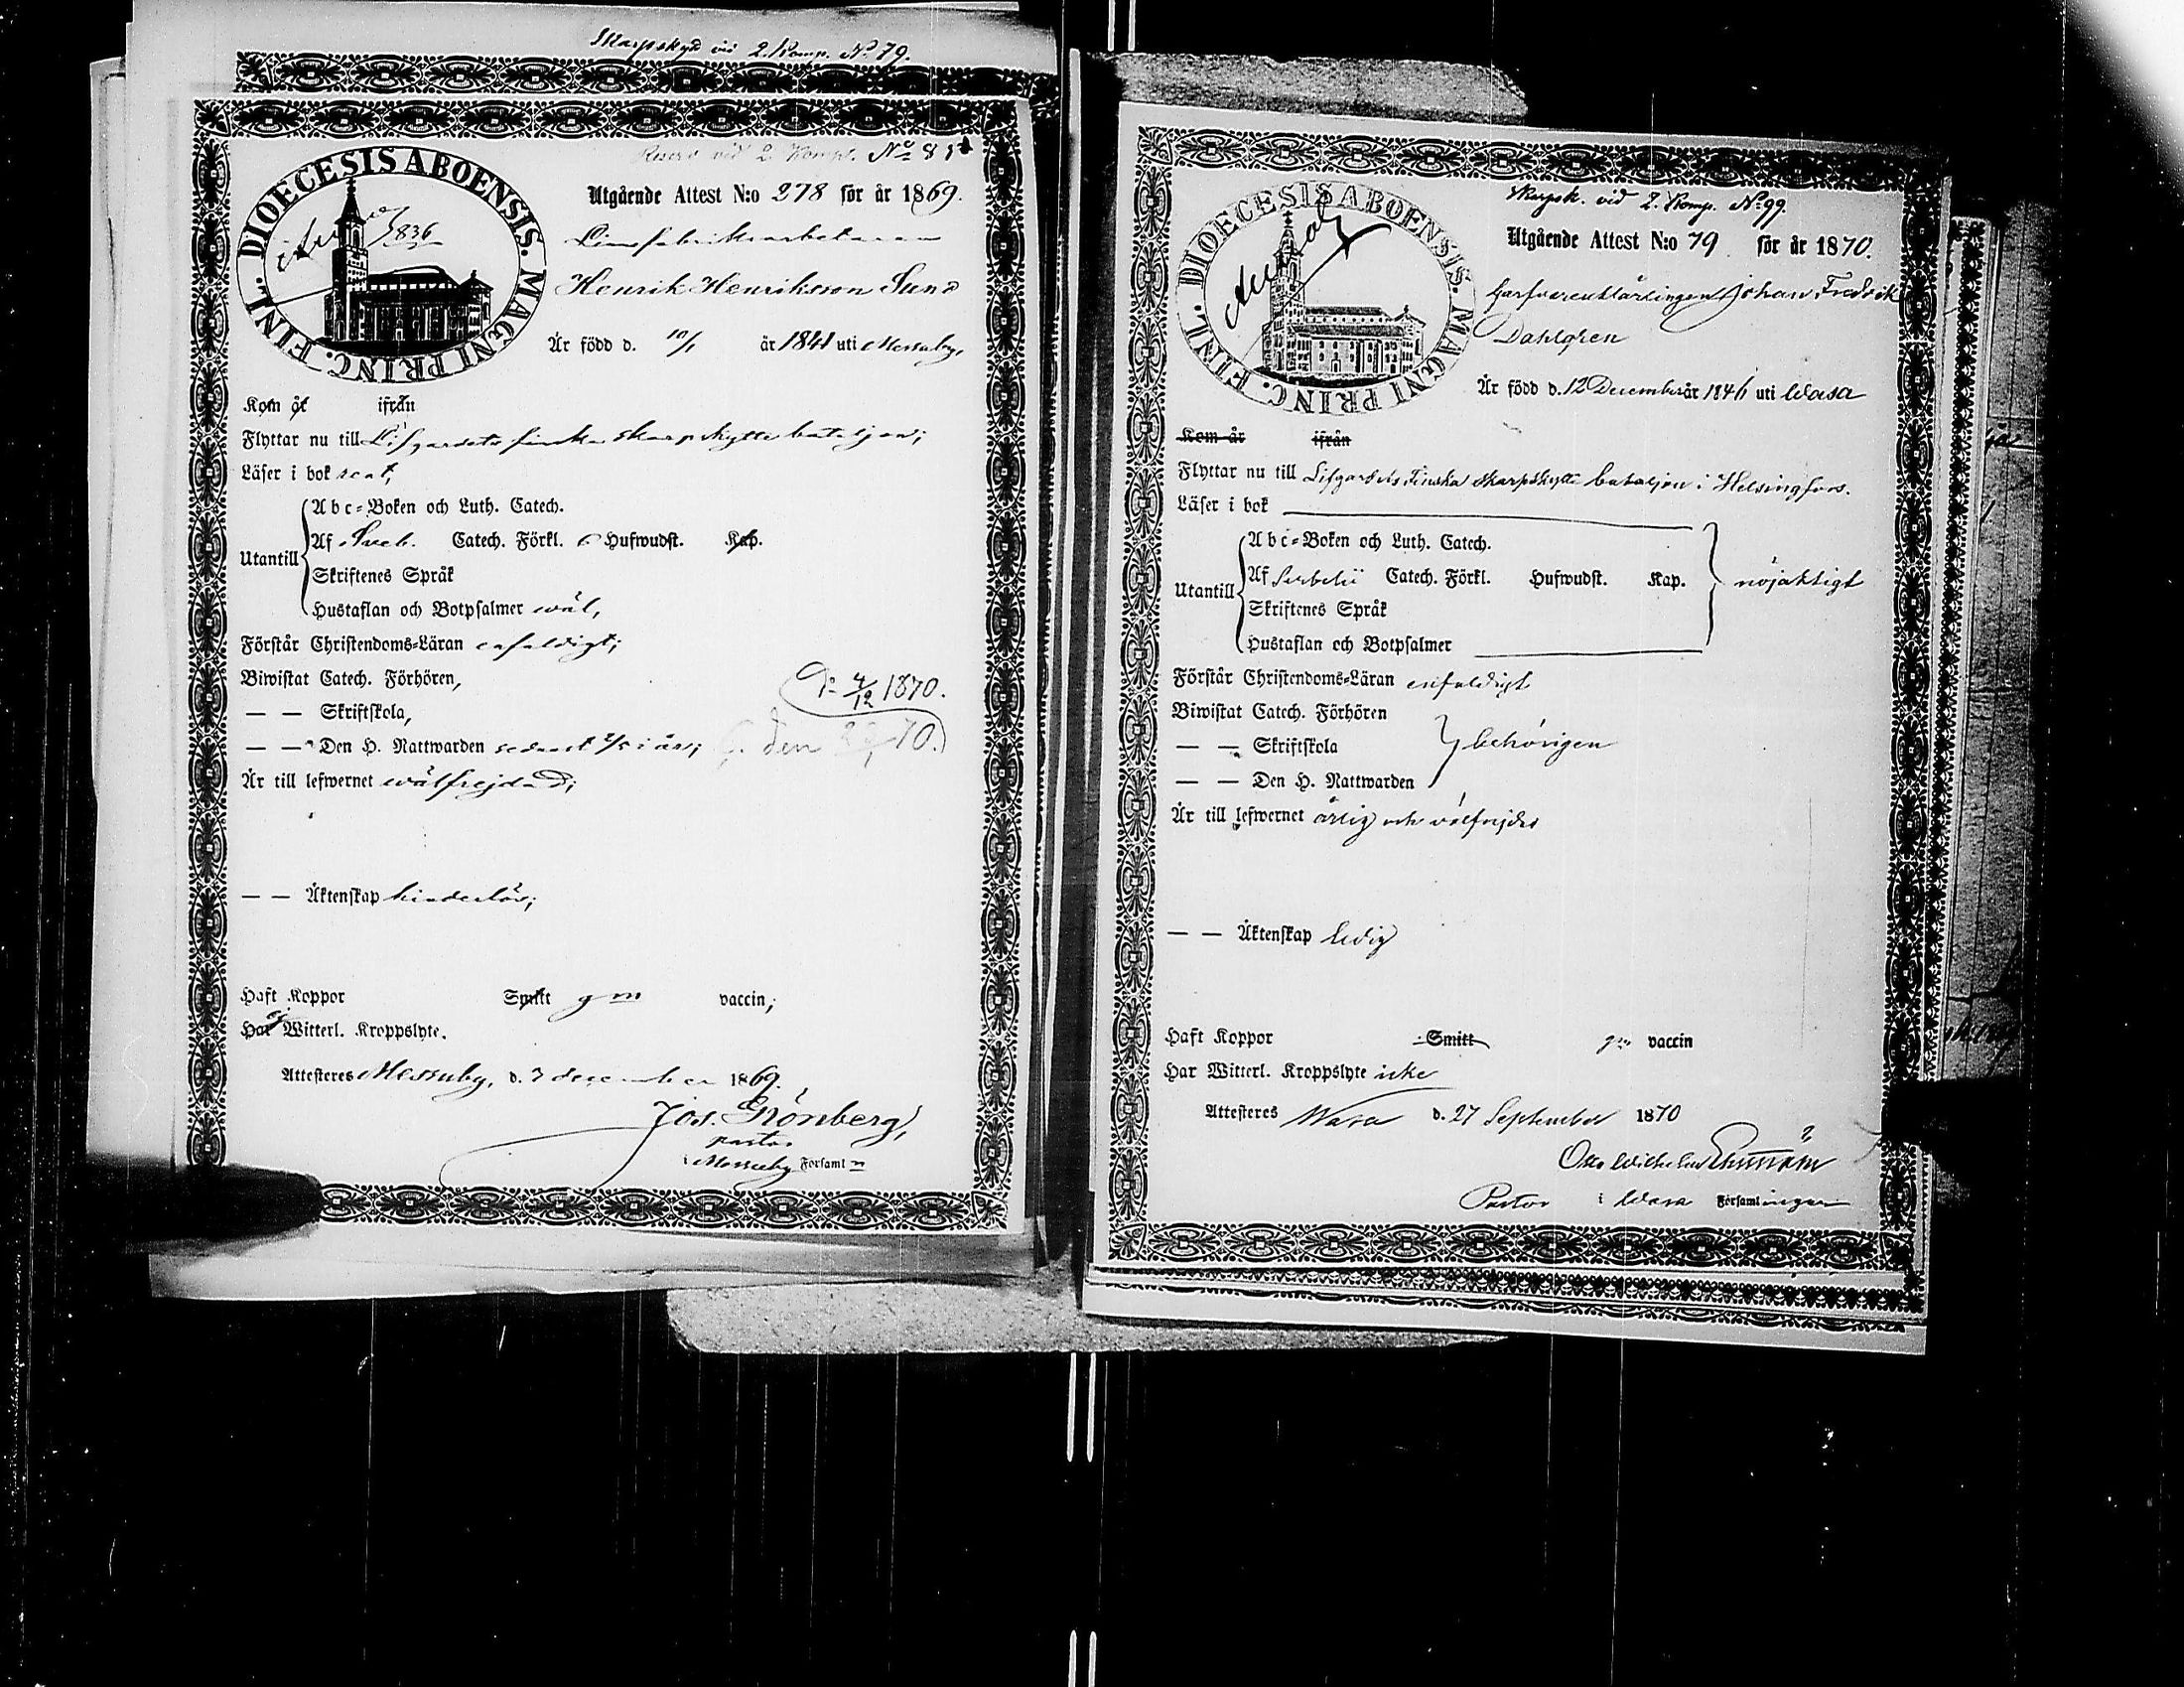 Skarpskyt vid 2. Komp. No 79.
Reserv vid 2 Komp. No
DIOECESIS ABOENSIS. MAGNI PRINC. FINL.
836
Utgående Attest N:o 278 för år 1869.
Henrik Henriksson Sund
Är född d. 10/1 år 1841 uti Messuby,
Kom år ifrån
Flyttar nu till Lifgardets finska skarpskytte bataljon;
Läser i bok
Utantill
Abc-Boken och Luth. Catech.
Af Sveb. Catech. Förkl. 6 Hufwudst. Kap.
Skriftenes Språk
Hustaflan och Botpsalmer wäl,
Förstår Christendoms-Läran enfaldigt;
Biwistat Catech. Förhören,
— — Skriftskola,
— — Den H. Nattwarden senast i år;
D. 4/12 1870.
den 70.
Är till lefwernet wälfrejdad;
— — Äktenskap hinderlös;
Haft Koppor Smitt gm vaccin;
Har ej Witterl. Kroppslyte.
Attesteres Messuby, d. 3 december 1869.
Jos. Grönberg,
Pastor
i Messuby Forsamln
Skarpsk. vid 2. Komp. No 99.
DIOECESIS ABOENSIS. MAGNI PRINC. FINL.
Utgående Attest N:o 79 för år 1870.
Garfvarelärlingen Johan Fredrik
Dahlgren
Är född d. 12 December år 1846 uti Wasa
Kom år ifrån
Flyttar nu till Lifgardets Finska Skarpskytte bataljon i Helsingfors.
Läser i bok
Utantill
Abc-Boken och Luth. Catech.
Af Svebelii Catech. Förkl. Hufwudst. Kap.
nöjaktigt
Skriftenes Språk
Hustaflan och Botpsalmer
Förstår Christendoms-Läran enfaldigt
Biwistat Catech. Förhören
— — Skriftskola
behörigen
— — Den H. Nattwarden
Är till lefwernet ärlig och välfrejdad
— — Äktenskap ledig
Haft Koppor Smitt gm vaccin
Har Witterl. Kroppslyte icke
Attesteres Wasa d. 27 September 1870
Otto Wilhelm
Pastor i Wasa Forsamlingar